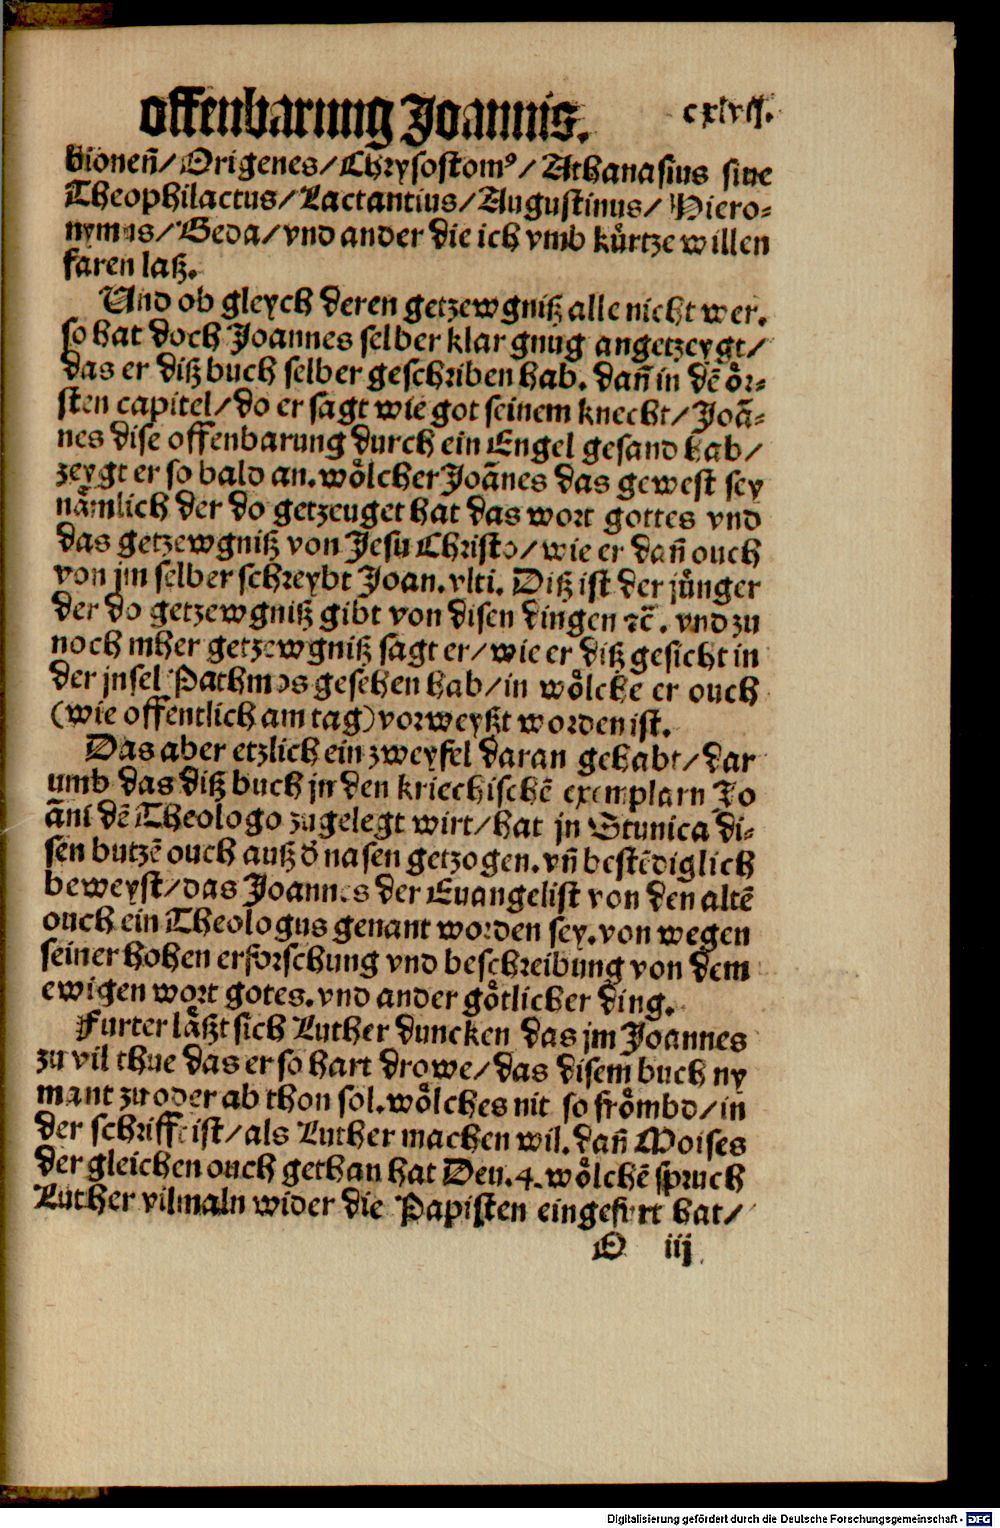 offenbarung Joannis.
bionen̄/Origenes/Chrysostomꝰ/Athanasius sive
Theophilactus/Lactantius/Augustinus/Hiero⸗
nymus/Beda/vnd ander die ich vmb kůrtze willen
faren laß.
Und ob gleych deren getzewgniß alle nicht wer.
so hat doch Joannes selber klar gnug angetzeygt/
das er diß buch selber geschriben hab. dan̄ in dē ŏr⸗
sten capitel/do er sagt wie got seinem knecht/Joā⸗
nes dise offenbarung durch ein Engel gesand hab/
zeygt er so bald an. wŏlcher Joānes das gewest sey
nåmlich der do getzeuget hat das wort gottes vnd
das getzewgniß von Jesu Christo/wie er dan̄ ouch
von jm selber schreybt Joan. vlti. Diß ist der jůnger
der do getzewgniß gibt von disen dingen ꝛc̄. vnd zu
noch mher getzewgniß sagt er/wie er diß gesicht in
der jnsel Pathmos gesehen hab/in wŏlche er ouch
(wie offentlich am tag) vorweyßt worden ist.
Das aber etzlich ein zweyfel daran gehabt/dar
umb das diß buch jn den kriechischē exemplarn Jo
āni dē Theologo zugelegt wirt/hat jn Stunica di⸗
sen butzē ouch auß đ nasen getzogen. vn̄ bestēdiglich
beweyst/das Joannes der Euangelist von den altē
ouch ein Theologus genant worden sey. von wegen
seiner hohen erforschung vnd beschreibung von dem
ewigen wort gotes. vnd ander gŏtlicher ding.
Furter låßt sich Luther duncken das jm Joannes
zu vil thue das er so hart drowe/das disem buch ny
mant zu oder ab thon sol. wŏlches nit so frŏmbd/in
der schrifft ist/als Luther machen wil. dan̄ Moises
der gleichen ouch gethan hat Deu. 4. wŏlchē spruch
Luther vilmaln wider die Papisten eingefurt hat/
O iij
Digitalisierung gefördert durch die Deutsche Forschungsgemeinschaft - DFG